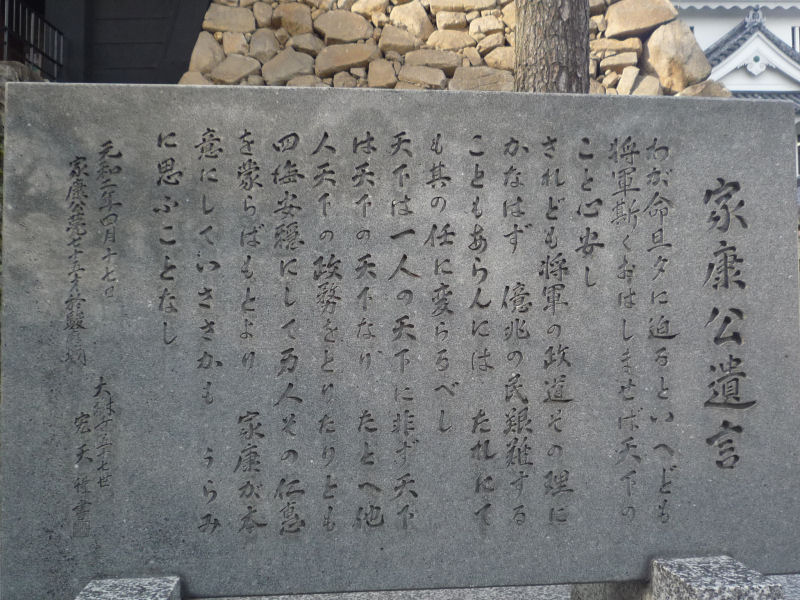 家康公遺言
わが命旦夕に迫るといへども
将軍斯くおはしませば天下の
こと心安し
されども将軍の政道その理に
かなはず 億兆の民艱難する
こともあらんには たれにて
も其の任に変らるべし
天下は一人の天下に非ず天下
は天下の天下なり たとへ他
人天下の政務をとりたりとも
四海安穏にして万人その仁恵
を蒙らばもとより 家康が本
意にしていささかも うらみ
に思ふことなし
元和二年四月十七日
家康公薨七十五才於駿府
大樹寺五十七世
完天禅書